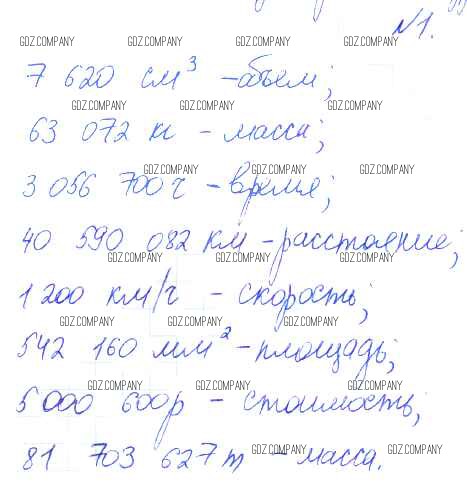 №1.
GDZ.COMPANY GDZ.COMPANY GDZ.COMPANY GDZ.COMPANY
7 620 см³ - объем;
GDZ.COMPANY GDZ.COMPANY GDZ.COMPANY
63 072 кг - масса;
GDZ.COMPANY GDZ.COMPANY GDZ.COMPANY
3 056 700 ч - время;
GDZ.COMPANY GDZ.COMPANY GDZ.COMPANY
40 590 082 км - расстояние;
GDZ.COMPANY GDZ.COMPANY GDZ.COMPANY
1 200 км/ч - скорость;
GDZ.COMPANY GDZ.COMPANY GDZ.COMPANY
542 160 мм² - площадь;
GDZ.COMPANY GDZ.COMPANY GDZ.COMPANY
5 000 600 р - стоимость;
81 703 627 т - масса.
GDZ.COMPANY GDZ.COMPANY